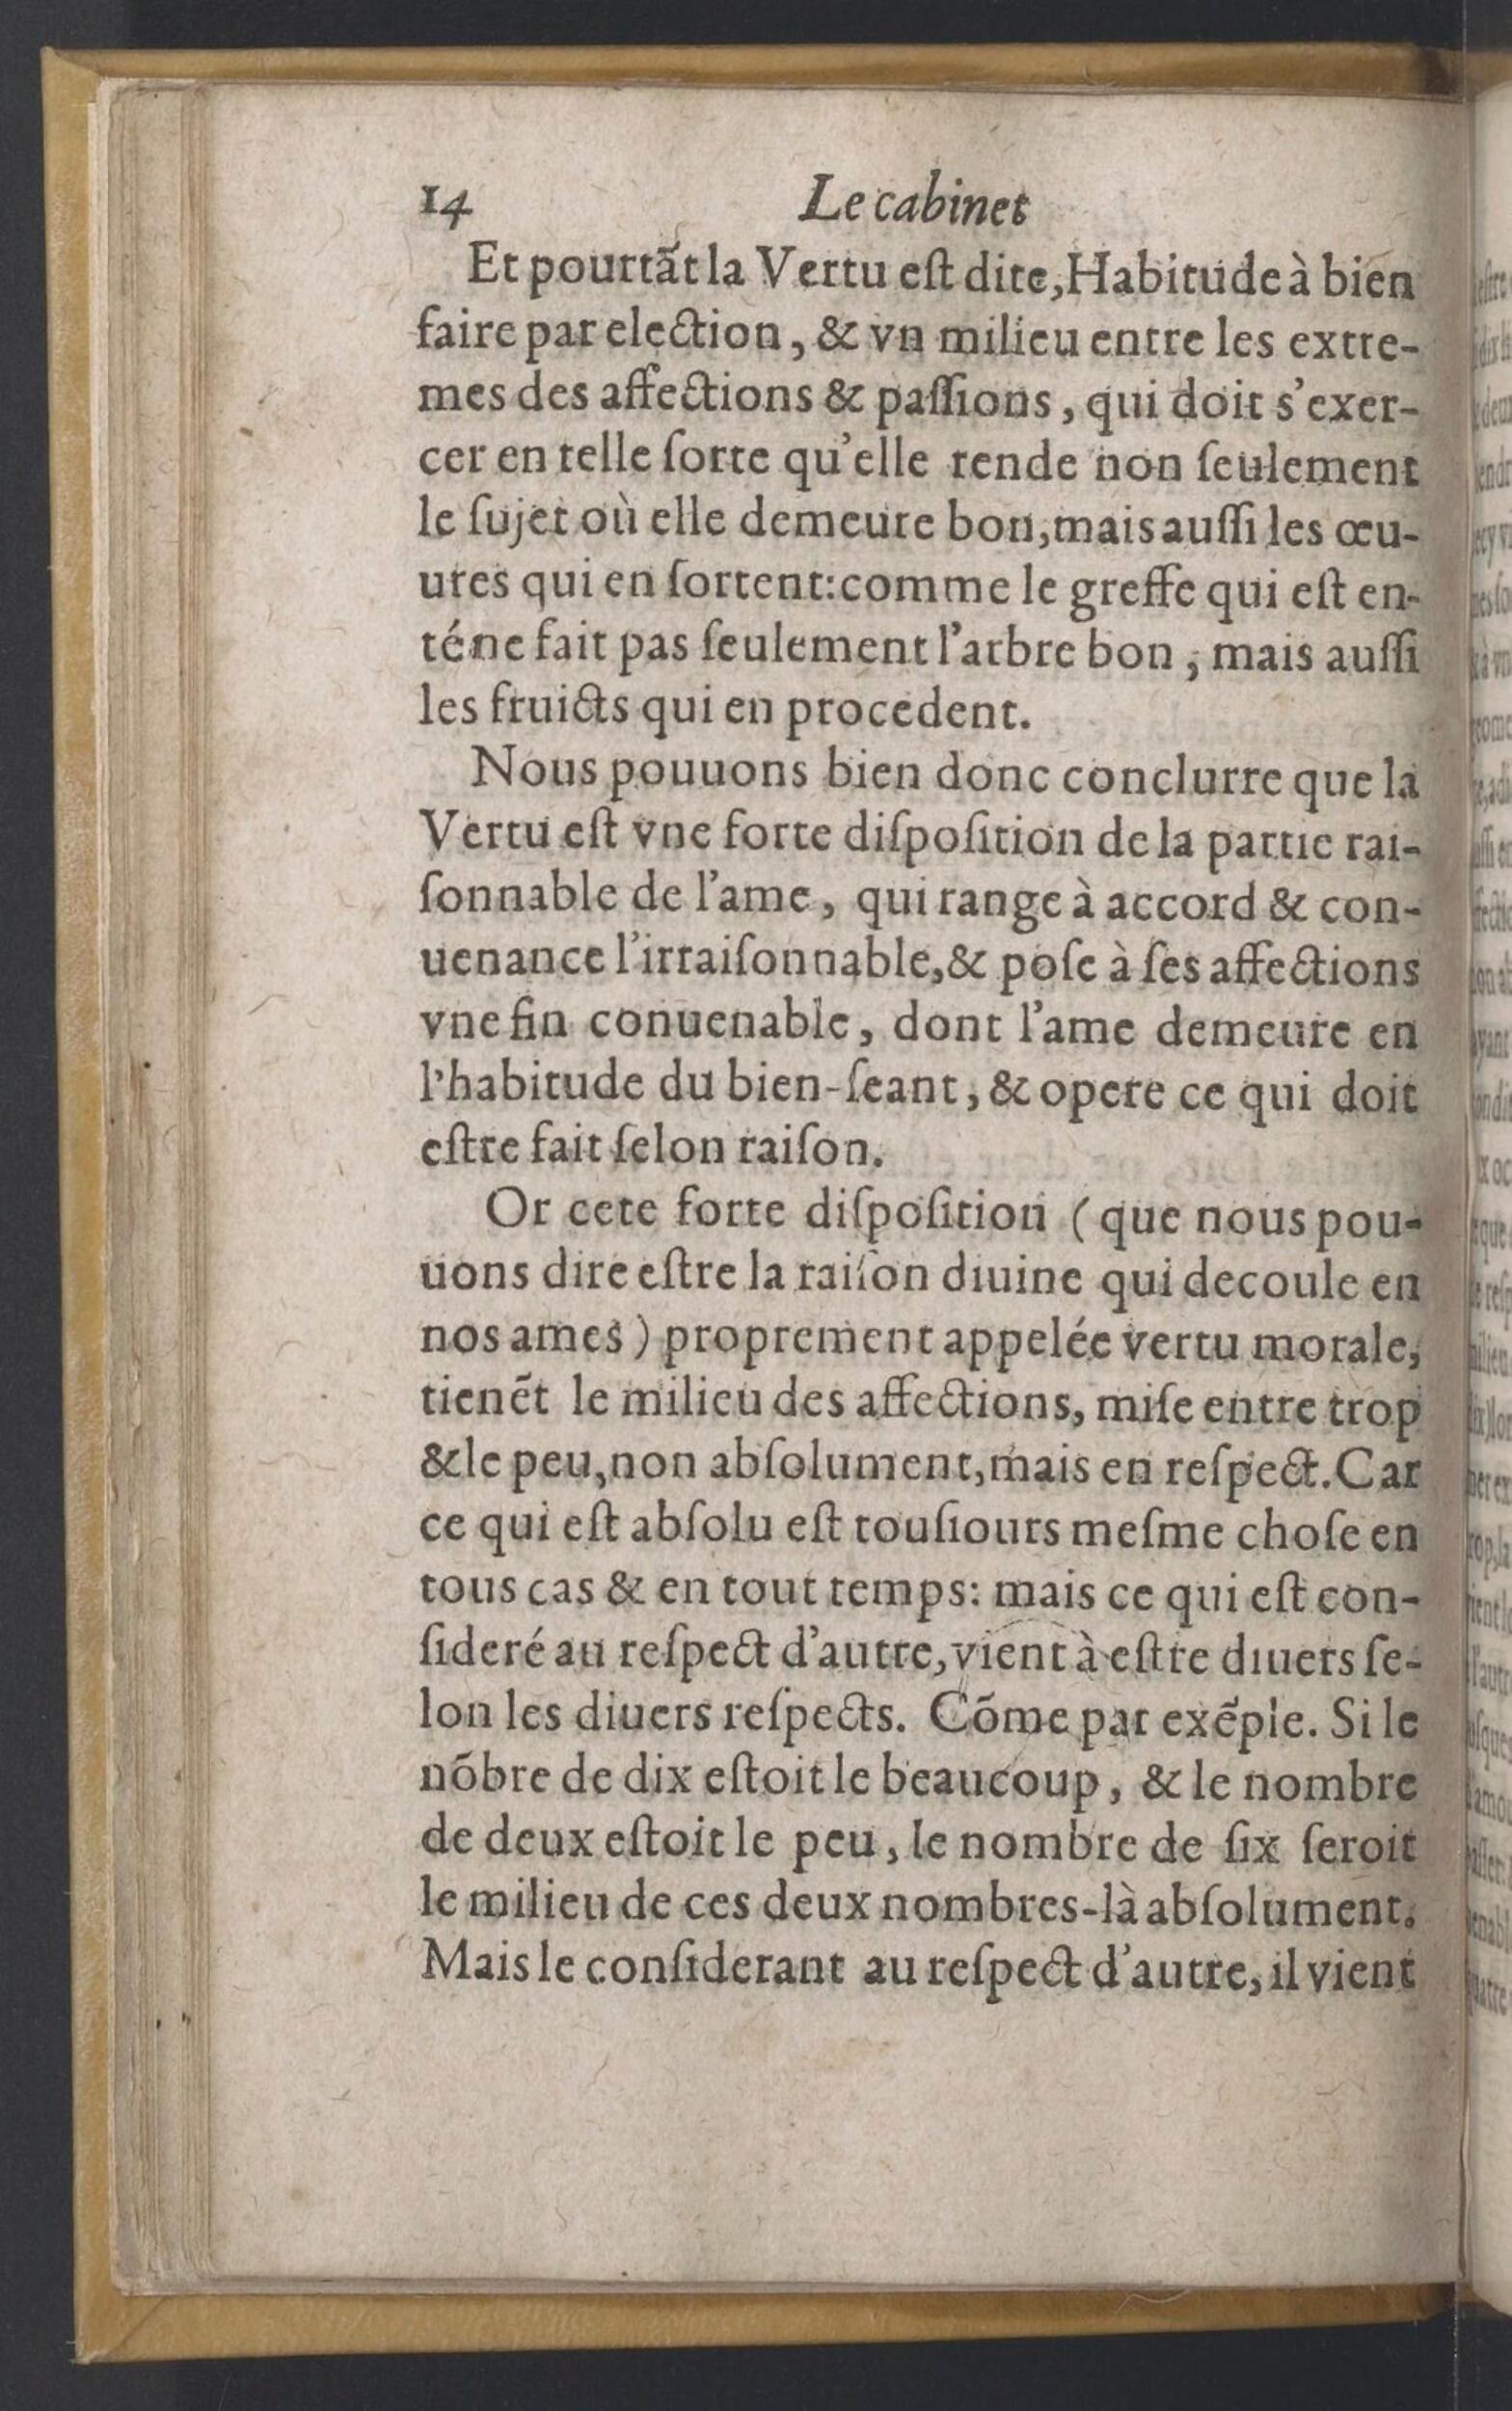 14 Le cabinet
Et pourtãt la Vertu eſt dite, Habitude à bien
faire par election, & vn milieu entre les extre-
mes des affections & paſſions, qui doit s'exer-
cer en telle ſorte qu'elle rende non ſeulement
le ſujet où elle demeure bon, mais auſſi les œu-
ures qui en ſortent: comme le greffe qui eſt en-
té ne fait pas ſeulement l'arbre bon, mais auſſi
les fruicts qui en procedent.
Nous pouuons bien donc conclurre que la
Vertu eſt vne forte diſpoſition de la partie rai-
ſonnable de l'ame, qui range à accord & con-
uenance l'irraiſonnable, & poſe à ſes affections
vne fin conuenable, dont l'ame demeure en
l'habitude du bien-ſeant, & opere ce qui doit
eſtre fait ſelon raiſon.
Or cete forte diſpoſition (que nous pou-
uons dire eſtre la raiſon diuine qui decoule en
nos ames) proprement appelée vertu morale,
tienẽt le milieu des affections, miſe entre trop
& le peu, non abſolument, mais en reſpect. Car
ce qui eſt abſolu eſt touſiours meſme choſe en
tous cas & en tout temps: mais ce qui eſt con-
ſideré au reſpect d'autre, vient à eſtre diuers ſe-
lon les diuers reſpects. Cõme par exẽple. Si le
nõbre de dix eſtoit le beaucoup, & le nombre
de deux eſtoit le peu, le nombre de ſix ſeroit
le milieu de ces deux nombres-là abſolument.
Mais le conſiderant au reſpect d'autre, il vient